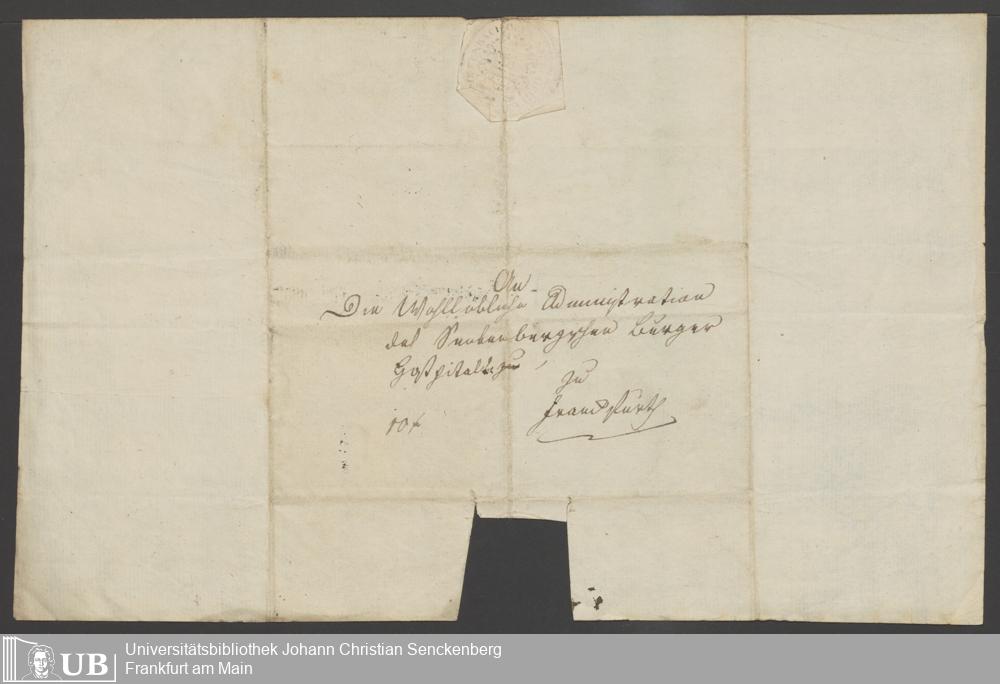 An
Die Wohllöbliche Administration
des Senkenbergschen Burger
Hospitals
zu
Franckfurth
Universitätsbibliothek Johann Christian Senckenberg
UB Frankfurt am Main